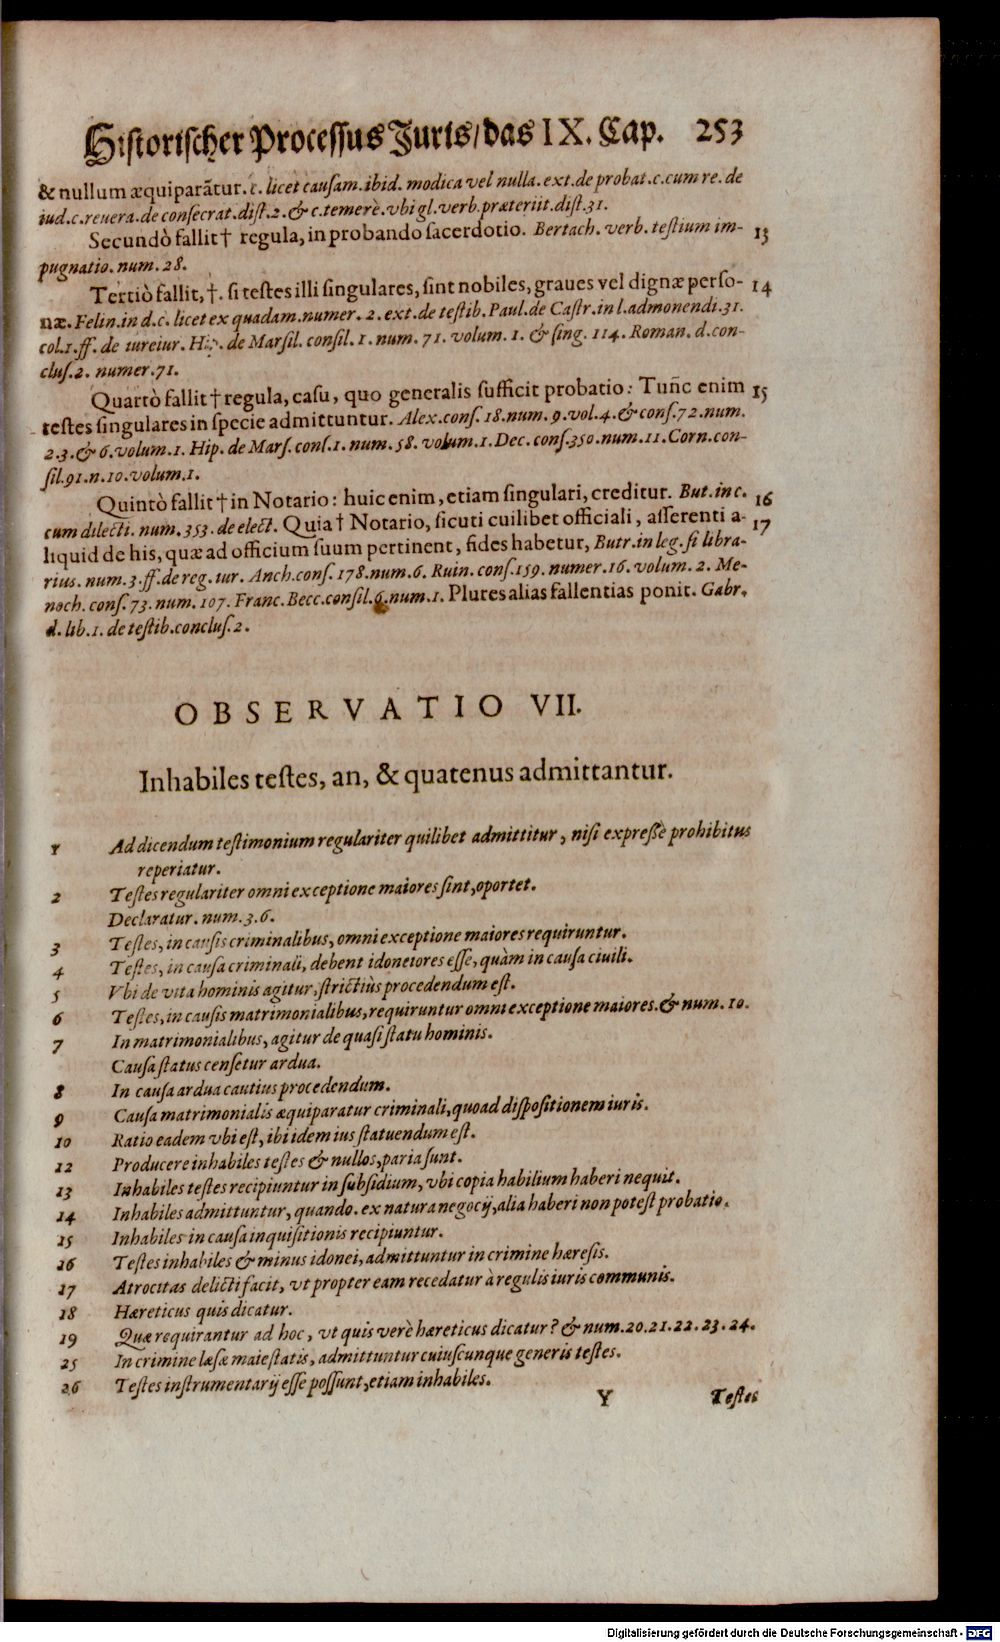 Historischer Processus Juris/das IX. Cap. 253
& nullum æquiparãtur. c. licet causam. ibid. modica vel nulla. ext. de probat. c. cum re. de
iud. c. reuera. de consecrat. dist. 2. & c. temerè. vbi gl. verb. præteriit. dist. 31.
Secundò fallit † regula, in probando sacerdotio. Bertach. verb. testium im- 13
pugnatio. num. 28.
Tertiò fallit, †. si testes illi singulares, sint nobiles, graues vel dignæ perso- 14
næ. Felin. in d. c. licet ex quadam. numer. 2. ext. de testib. Paul. de Castr. in l. admonendi. 31.
col. 1. ff. de iureiur. Hip. de Marsil. consil. 1. num. 71. volum. 1. & sing. 114. Roman. d. con-
clus. 2. numer. 71.
Quartò fallit † regula, casu, quo generalis sufficit probatio: Tunc̃ enim 15
testes singulares in specie admittuntur. Alex. cons. 18. num. 9. vol. 4. & cons. 72. num.
2. 3. & 6. volum. 1. Hip. de Mars. cons. 1. num. 58. volum. 1. Dec. cons. 350. num. 11. Corn. con-
sil. 91. n. 10. volum. 1.
Quintò fallit † in Notario: huic enim, etiam singulari, creditur. But. in c. 16
cum dilecti. num. 353. de elect. Quia † Notario, sicuti cuilibet officiali, asserenti a- 17
liquid de his, quæ ad officium suum pertinent, fides habetur, Butr. in leg. si libra-
rius. num. 3. ff. de reg. iur. Anch. cons. 178. num. 6. Ruin. cons. 159. numer. 16. volum. 2. Me-
noch. cons. 73. num. 107. Franc. Becc. consil. 6. num. 1. Plures alias fallentias ponit. Gabr.
d. lib. 1. de testib. conclus. 2.
OBSERVATIO VII.
Inhabiles testes, an, & quatenus admittantur.
1 Ad dicendum testimonium regulariter quilibet admittitur, nisi expressè prohibitus
reperiatur.
2 Testes regulariter omni exceptione maiores sint, oportet.
Declaratur. num. 3. 6.
3 Testes, in causis criminalibus, omni exceptione maiores requiruntur.
4 Testes, in causa criminali, debent idoneiores esse, quàm in causa ciuili.
5 Vbi de vita hominis agitur, strictiùs procedendum est.
6 Testes, in causis matrimonialibus, requiruntur omni exceptione maiores. & num. 10.
7 In matrimonialibus, agitur de quasi statu hominis.
Causa status censetur ardua.
8 In causa ardua cautius procedendum.
9 Causa matrimonialis æquiparatur criminali, quoad dispositionem iuris.
10 Ratio eadem vbi est, ibi idem ius statuendum est.
12 Producere inhabiles testes & nullos, paria sunt.
13 Inhabiles testes recipiuntur in subsidium, vbi copia habilium haberi nequit.
14 Inhabiles admittuntur, quando. ex natura negocij, alia haberi non potest probatio.
15 Inhabiles in causa inquisitionis recipiuntur.
16 Testes inhabiles & minus idonei, admittuntur in crimine hæresis.
17 Atrocitas delicti facit, vt propter eam recedatur à regulis iuris communis.
18 Hæreticus quis dicatur.
19 Quæ requirantur ad hoc, vt quis verè hæreticus dicatur? & num. 20. 21. 22. 23. 24.
25 In crimine læsæ maiestatis, admittuntur cuiuscunque generis testes.
26 Testes instrumentarij esse possunt, etiam inhabiles.
Y Testes
Digitalisierung gefördert durch die Deutsche Forschungsgemeinschaft - DFG